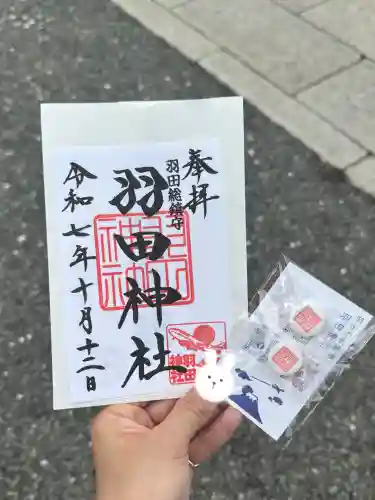 奉拝
羽田総鎮守
羽田神社
令和七年十月十二日
羽田
神社